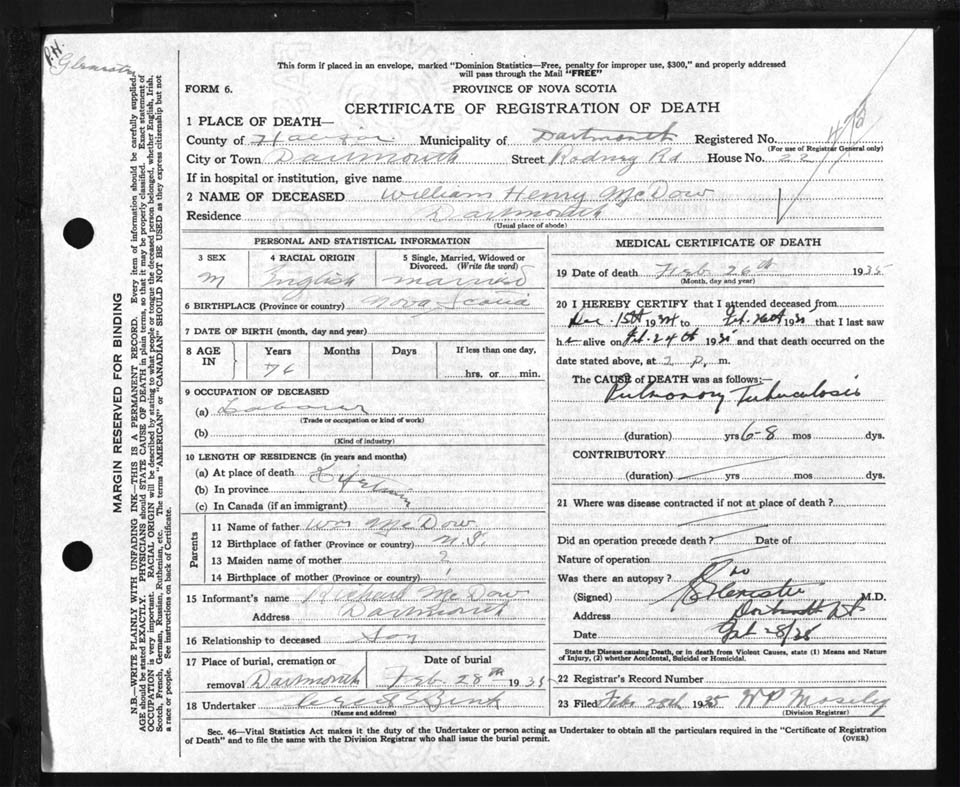 P.H.
This form if placed in an envelope, marked "Dominion Statistics—Free, penalty for improper use, $300," and properly addressed
will pass through the Mail "FREE"
FORM 6.
PROVINCE OF NOVA SCOTIA
CERTIFICATE OF REGISTRATION OF DEATH
1 PLACE OF DEATH—
County of Halifax Municipality of Dartmouth Registered No.
(For use of Registrar General only)
City or Town Dartmouth Street Rodney Rd House No. 22
If in hospital or institution, give name
2 NAME OF DECEASED William Henry McDow
Residence Dartmouth
(Usual place of abode)
PERSONAL AND STATISTICAL INFORMATION
3 SEX
M
4 RACIAL ORIGIN
English
5 Single, Married, Widowed or Divorced. (Write the word)
married
6 BIRTHPLACE (Province or country) Nova Scotia
7 DATE OF BIRTH (month, day and year)
8 AGE IN
Years Months Days If less than one day,
76
hrs. or min.
9 OCCUPATION OF DECEASED
(a) Labourer
(Trade or occupation or kind of work)
(b)
(Kind of industry)
10 LENGTH OF RESIDENCE (in years and months)
(a) At place of death
(b) In province
(c) In Canada (if an immigrant)
Parents
11 Name of father Wm McDow
12 Birthplace of father (Province or country) N.S.
13 Maiden name of mother ?
14 Birthplace of mother (Province or country)
15 Informant's name McDow
Address Dartmouth
16 Relationship to deceased Son
17 Place of burial, cremation or removal Dartmouth
Date of burial
Feb 28th 1935
18 Undertaker
(Name and address)
MEDICAL CERTIFICATE OF DEATH
19 Date of death Feb 26th 1935
(Month, day and year)
20 I HEREBY CERTIFY that I attended deceased from
Dec. 15th 1934 to that I last saw
h alive on and that death occurred on the
date stated above, at 2 P. m.
The CAUSE of DEATH was as follows:—
Pulmonary Tuberculosis
(duration) yrs 6-8 mos dys.
CONTRIBUTORY
(duration) yrs. mos. dys.
21 Where was disease contracted if not at place of death?
Did an operation precede death? Date of
Nature of operation
Was there an autopsy? no
(Signed) M.D.
Address Dartmouth N.S.
Date Feb 28/35
State the Disease causing Death, or in death from Violent Causes, state (1) Means and Nature
of Injury, (2) whether Accidental, Suicidal or Homicidal.
22 Registrar's Record Number
23 Filed Feb 28th 1935
(Division Registrar)
Sec. 46—Vital Statistics Act makes it the duty of the Undertaker or person acting as Undertaker to obtain all the particulars required in the "Certificate of Registration
of Death" and to file the same with the Division Registrar who shall issue the burial permit.
(OVER)
MARGIN RESERVED FOR BINDING
N.B.—WRITE PLAINLY WITH UNFADING INK—THIS IS A PERMANENT RECORD. Every item of information should be carefully supplied.
AGE should be stated EXACTLY. PHYSICIANS should STATE CAUSE OF DEATH in plain terms, so that it may be properly classified. Exact statement of
OCCUPATION is very important. RACIAL ORIGIN will be described by stating to what people or tongue the deceased person belonged, whether English, Irish,
Scotch, French, German, Russian, Ruthenian, etc. The terms "AMERICAN" or "CANADIAN" SHOULD NOT BE USED as they express citizenship but not
a race or people. See instructions on back of Certificate.